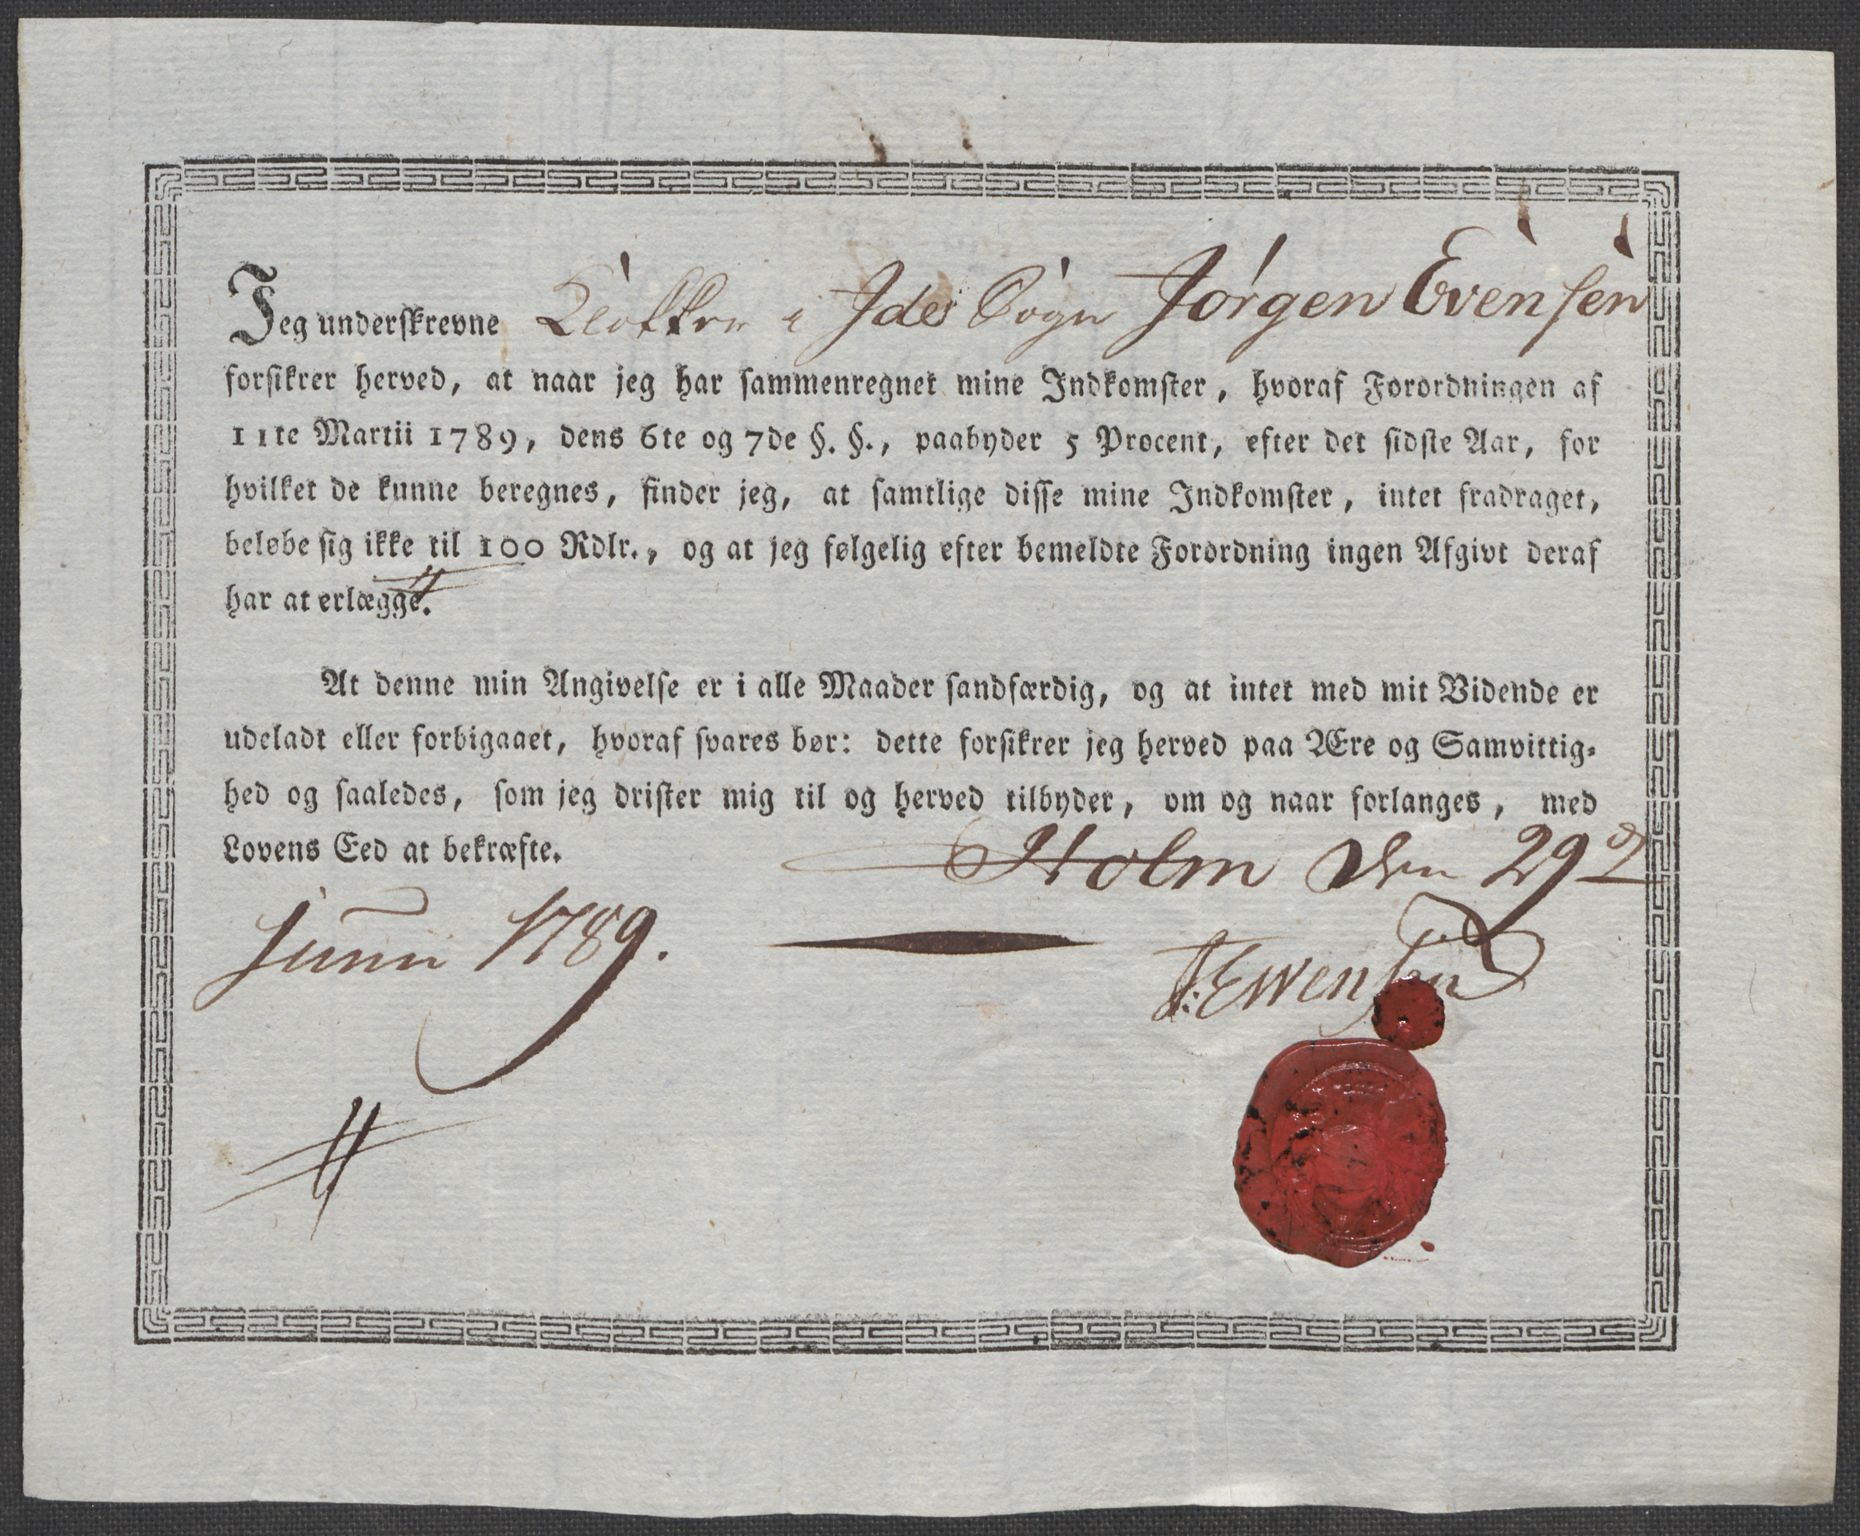 Jeg underskrevne Klokker i Ides Sogn Jørgen Evensen
forsikrer herved, at naar jeg har sammenregnet mine Indkomster, hvoraf Forordningen af
11te Martii 1789, dens 6te og 7de §. §., paabyder 5 Procent, efter det sidste Aar, for
hvilket de kunne beregnes, finder jeg, at samtlige disse mine Indkomster, intet fradraget,
beløbe sig ikke til 100 Rdlr., og at jeg følgelig efter bemeldte Forordning ingen Afgivt deraf
har at erlægge.
At denne min Angivelse er i alle Maader sandfærdig, og at intet med mit Vidende er
udeladt eller forbigaaet, hvoraf svares bør: dette forsikrer jeg herved paa Ære og Samvittig-
hed og saaledes, som jeg drister mig til og herved tilbyder, om og naar forlanges, med
Lovens Eed at bekræfte. Holm den 29de
Junii 1789.
J: Ewensen